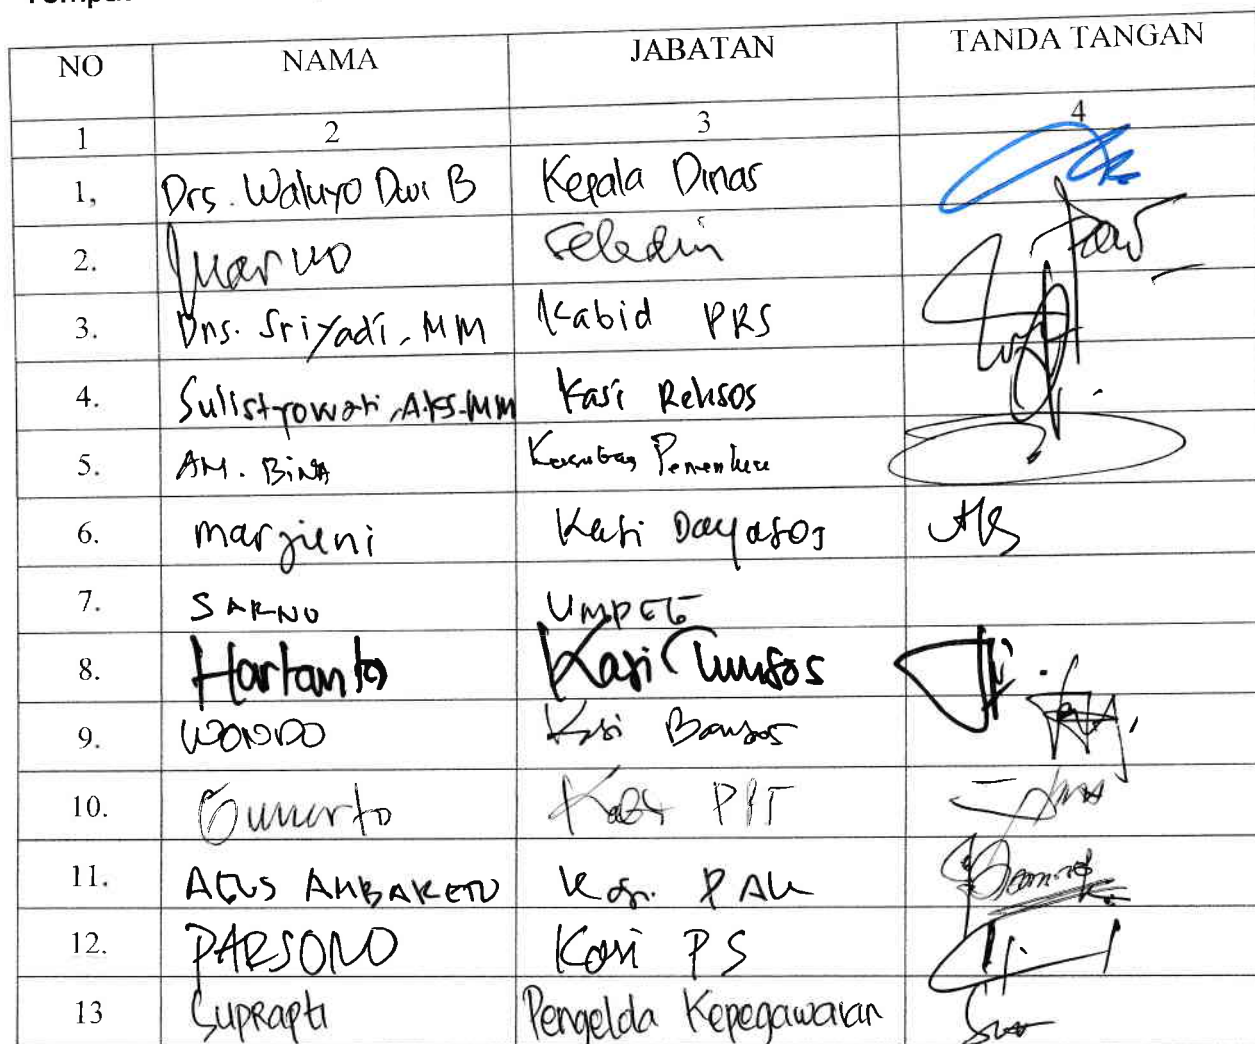 NO NAMA JABATAN TANDA TANGAN
1 2 3 4
1, Drs. Waluyo Dwi B Kepala Dinas
2. Seledin
3. Drs. Sriyadi, MM Kabid PRS
4. Sulistyowati, AKS.MM Kasi Rehsos
5. AM. BiNA
6. marjieni Kasi Dayasos
7. SARNO UMPEG
8. Hartanto Kasi
9. WONDO Kasi Bansos
10. Sunarto Kasi
11. AGUS Kasi. PAK
12. PARSONO Kasi PS
13 Suprapti Pengelola Kepegawaian